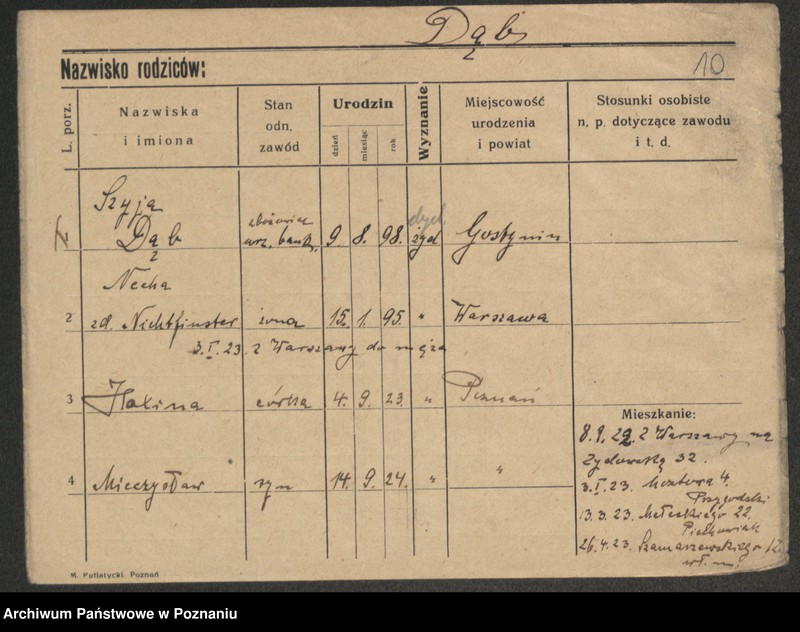 Dąb
Nazwisko rodziców:
10
L. porz.
Nazwiska
i imiona
Stan
odn.
zawód
Urodzin
dzień
miesiąc
rok
Wyznanie
Miejscowość
urodzenia
i powiat
Stosunki osobiste
n. p. dotyczące zawodu
i t. d.
Szyja
1 Dąb urz. bank. 9. 8. 98. żyd Gostynin
Necha
2 zd. Nichtfinster żona 15. 1. 95. " Warszawa
3. I. 23. z Warszawy do męża
3 Halina córka 4. 9. 23. " Poznań
4 Mieczysław syn 14. 9. 24. " "
Mieszkanie:
8. 9. 22. z Warszawy na
Żydowską 32.
3. I. 23. 4.
Przygodski
13. 3. 23. Małeckiego 22.
Piechowiak
26. 4. 23. Szamarzewskiego
wł. m.
M. Putiatycki. Poznań
Archiwum Państwowe w Poznaniu